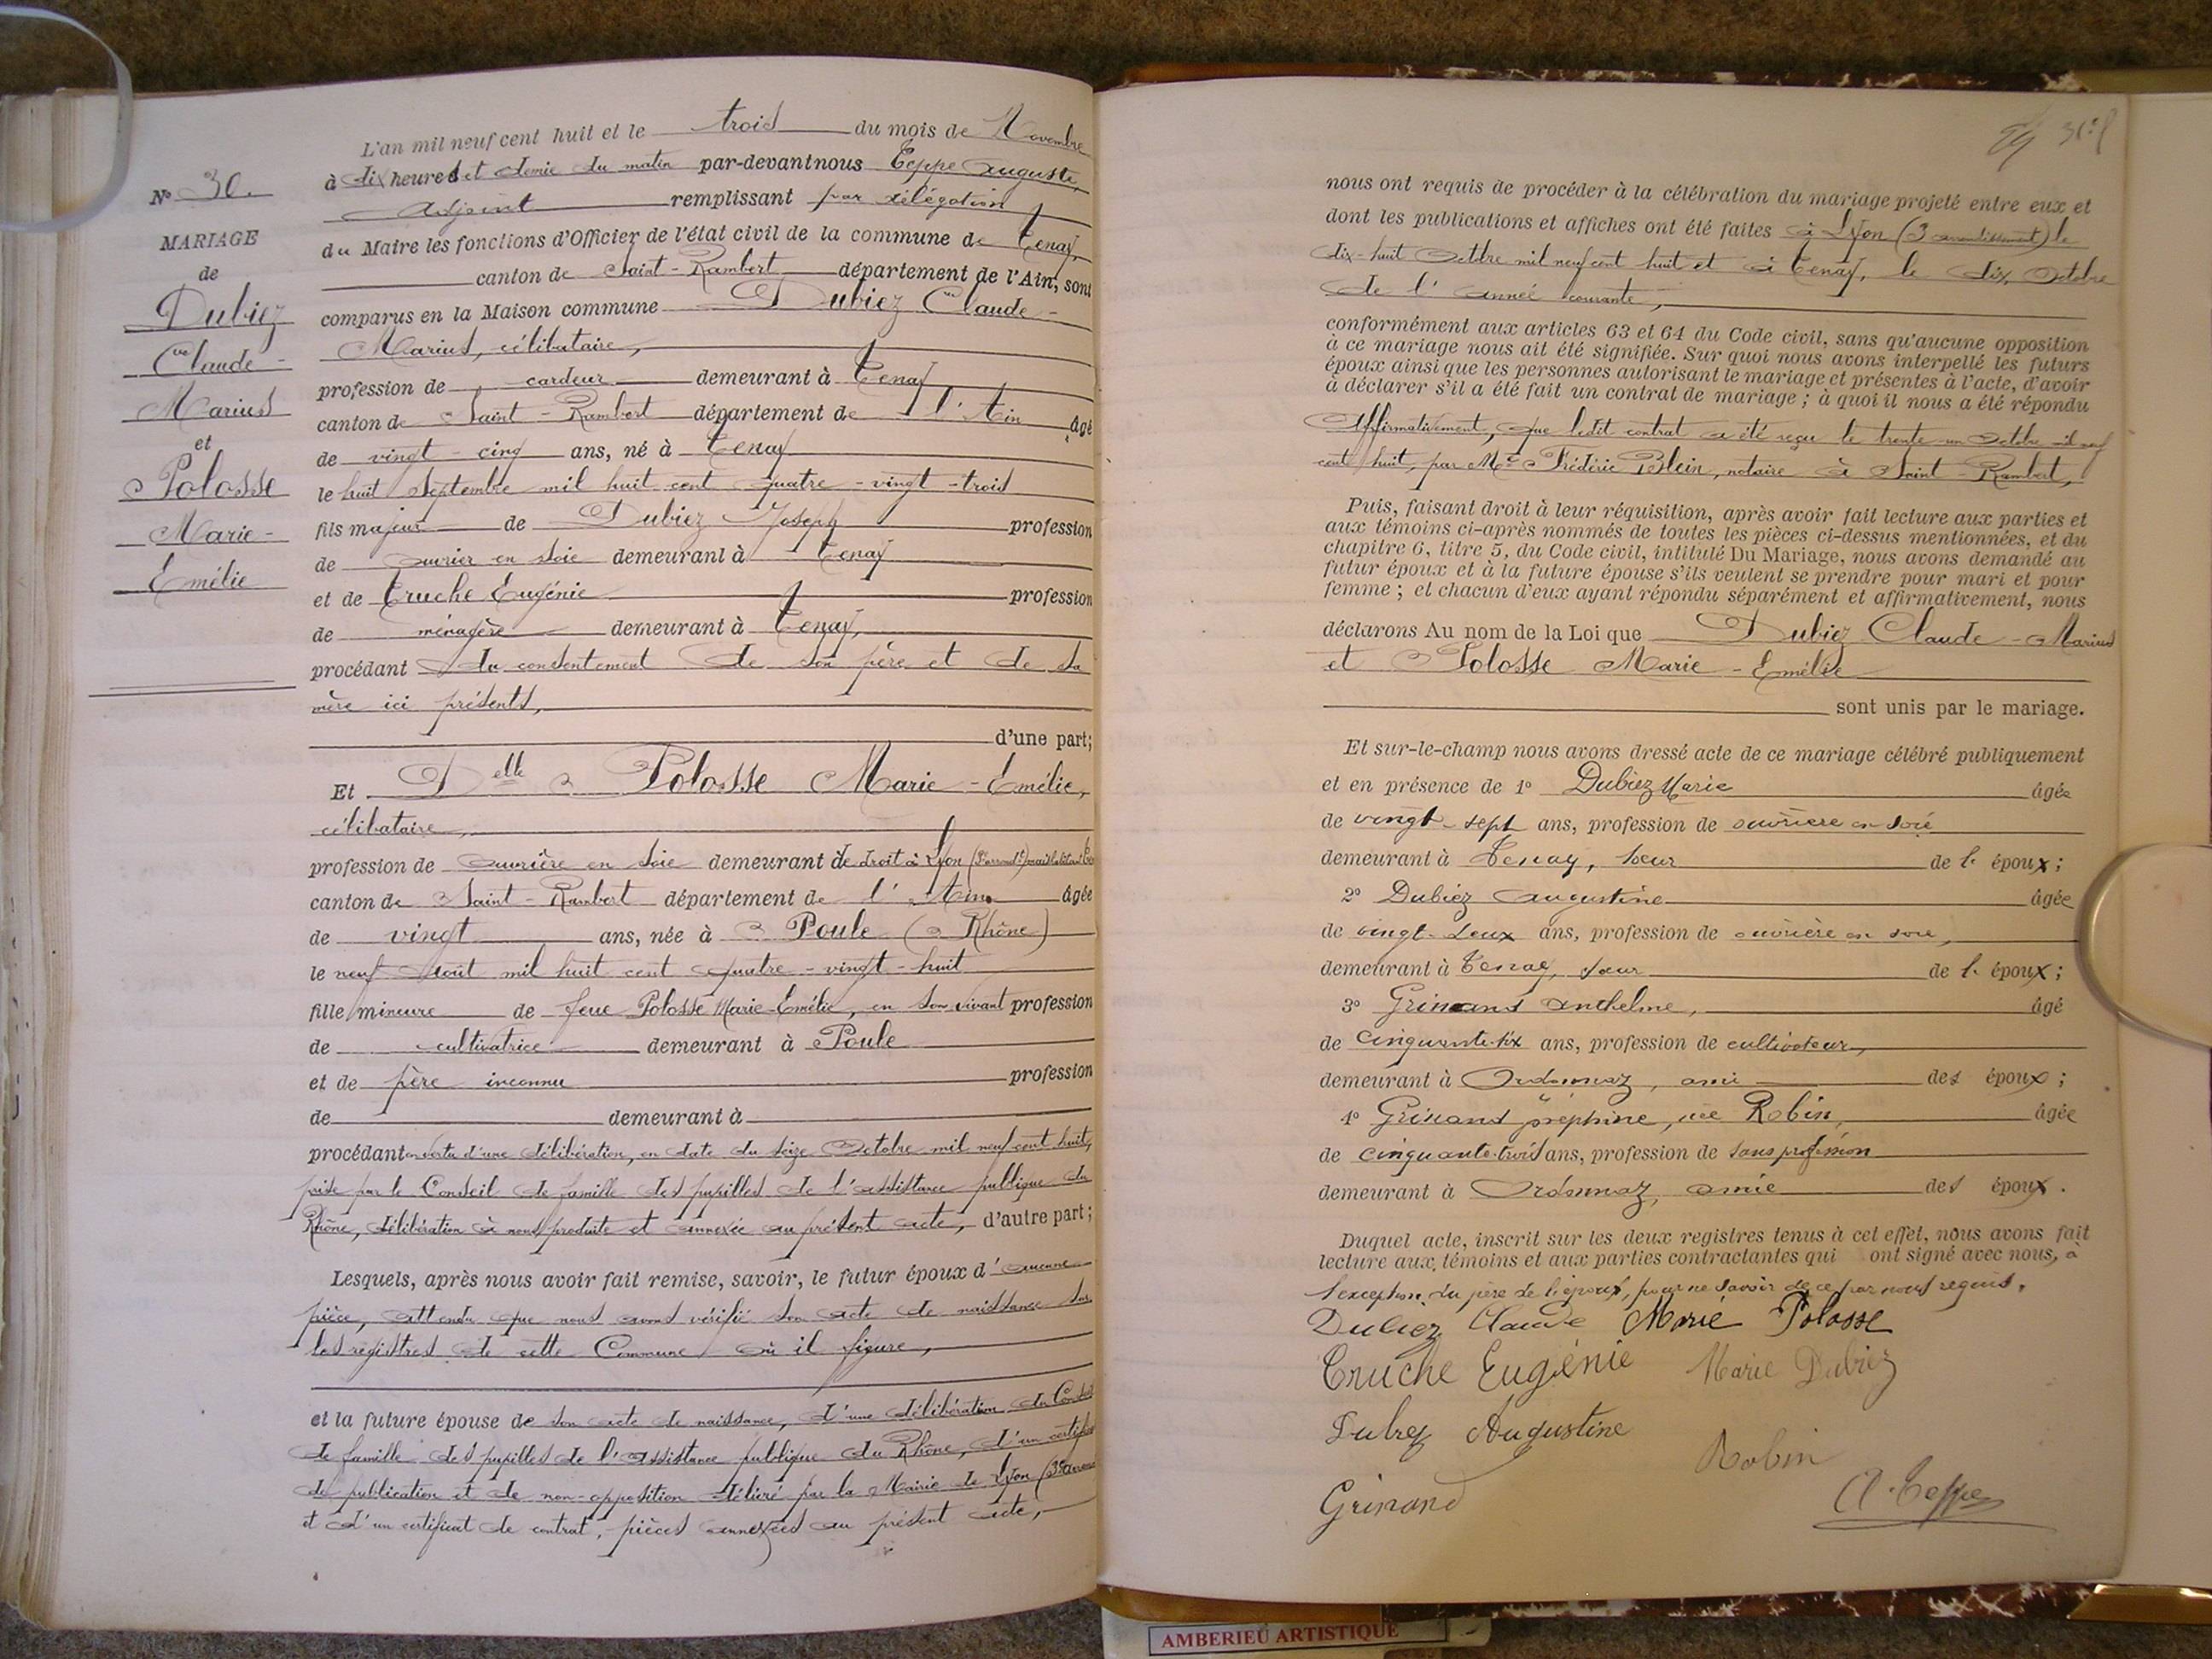 N° 30.
MARIAGE
de
Dubiez
Claude -
Marius
et
Polosse
Marie -
Emélie
L'an mil neuf cent huit et le trois du mois de Novembre
à dix heures et demie du matin par-devant nous Teppe Auguste,
Adjoint remplissant par délégation
du Maire les fonctions d'Officier de l'état civil de la commune de Tenay,
canton de Saint-Rambert département de l'Ain, sont
comparus en la Maison commune Dubiez Claude -
Marius, célibataire,
profession de cardeur demeurant à Tenay
canton de Saint-Rambert département de l'Ain âgé
de vingt-cinq ans, né à Tenay
le huit Septembre mil huit cent quatre-vingt-trois
fils majeur de Dubiez Joseph profession
de ouvrier en soie demeurant à Tenay
et de Truche Eugénie profession
de ménagère demeurant à Tenay,
procédant du consentement de son père et de sa
mère ici présents,
d'une part;
Et Delle Polosse Marie-Emélie,
célibataire,
profession de ouvrière en soie demeurant de droit à Lyon
canton de Saint-Rambert département de l'Ain âgée
de vingt ans, née à Poule (Rhône)
le neuf Août mil huit cent quatre-vingt-huit
fille mineure de feue Polosse Marie-Emélie, en son vivant profession
de cultivatrice demeurant à Poule
et de père inconnu profession
de demeurant à
procédant en vertu d'une délibération, en date du seize Octobre mil neuf cent huit,
prise par le Conseil de famille des pupilles de l'assistance publique du
Rhône, délibération à nous produite et annexée au présent acte, d'autre part;
Lesquels, après nous avoir fait remise, savoir, le futur époux d'aucune
pièce, attendu que nous avons vérifié son acte de naissance sur
les registres de cette Commune où il figure,
et la future épouse de son acte de naissance, d'une délibération du Conseil
de famille des pupilles de l'assistance publique du Rhône, d'un certificat
de publication et de non-opposition délivré par la Mairie de Lyon (3e
et d'un certificat de contrat, pièces annexées au présent acte,
nous ont requis de procéder à la célébration du mariage projeté entre eux et
dont les publications et affiches ont été faites à Lyon (3 arrondissement) le
dix-huit Octobre mil neuf cent huit et à Tenay, le dix Octobre
de l'année courante,
conformément aux articles 63 et 64 du Code civil, sans qu'aucune opposition
à ce mariage nous ait été signifiée. Sur quoi nous avons interpellé les futurs
époux ainsi que les personnes autorisant le mariage et présentes à l'acte, d'avoir
à déclarer s'il a été fait un contrat de mariage ; à quoi il nous a été répondu
Affirmativement, que ledit contrat a été reçu le trente-un Octobre mil neuf
cent huit, par Me Frédéric Blein, notaire à Saint-Rambert,
Puis, faisant droit à leur réquisition, après avoir fait lecture aux parties et
aux témoins ci-après nommés de toutes les pièces ci-dessus mentionnées, et du
chapitre 6, titre 5, du Code civil, intitulé Du Mariage, nous avons demandé au
futur époux et à la future épouse s'ils veulent se prendre pour mari et pour
femme ; et chacun d'eux ayant répondu séparément et affirmativement, nous
déclarons Au nom de la Loi que Dubiez Claude-Marius
et Polosse Marie-Emélie
sont unis par le mariage.
Et sur-le-champ nous avons dressé acte de ce mariage célébré publiquement
et en présence de 1° Dubiez Marie âgée
de vingt-sept ans, profession de ouvrière en soie
demeurant à Tenay, sœur de l'époux;
2° Dubiez Augustine âgée
de vingt-deux ans, profession de ouvrière en soie,
demeurant à Tenay, sœur de l'époux;
3° Grinand Anthelme, âgé
de cinquante-six ans, profession de cultivateur,
demeurant à Ordonnaz, ami des époux;
4° Grinand Joséphine, née Robin, âgée
de cinquante-trois ans, profession de sans profession
demeurant à Ordonnaz, amie des époux.
Duquel acte, inscrit sur les deux registres tenus à cet effet, nous avons fait
lecture aux témoins et aux parties contractantes qui ont signé avec nous, à
l'exception du père de l'époux, pour ne savoir de ce par nous requis.
Dubiez Claude Marie Polosse
Truche Eugénie Marie Dubiez
Dubiez Augustine
Robin
Grinand A. Teppe
AMBERIEU ARTISTIQUE